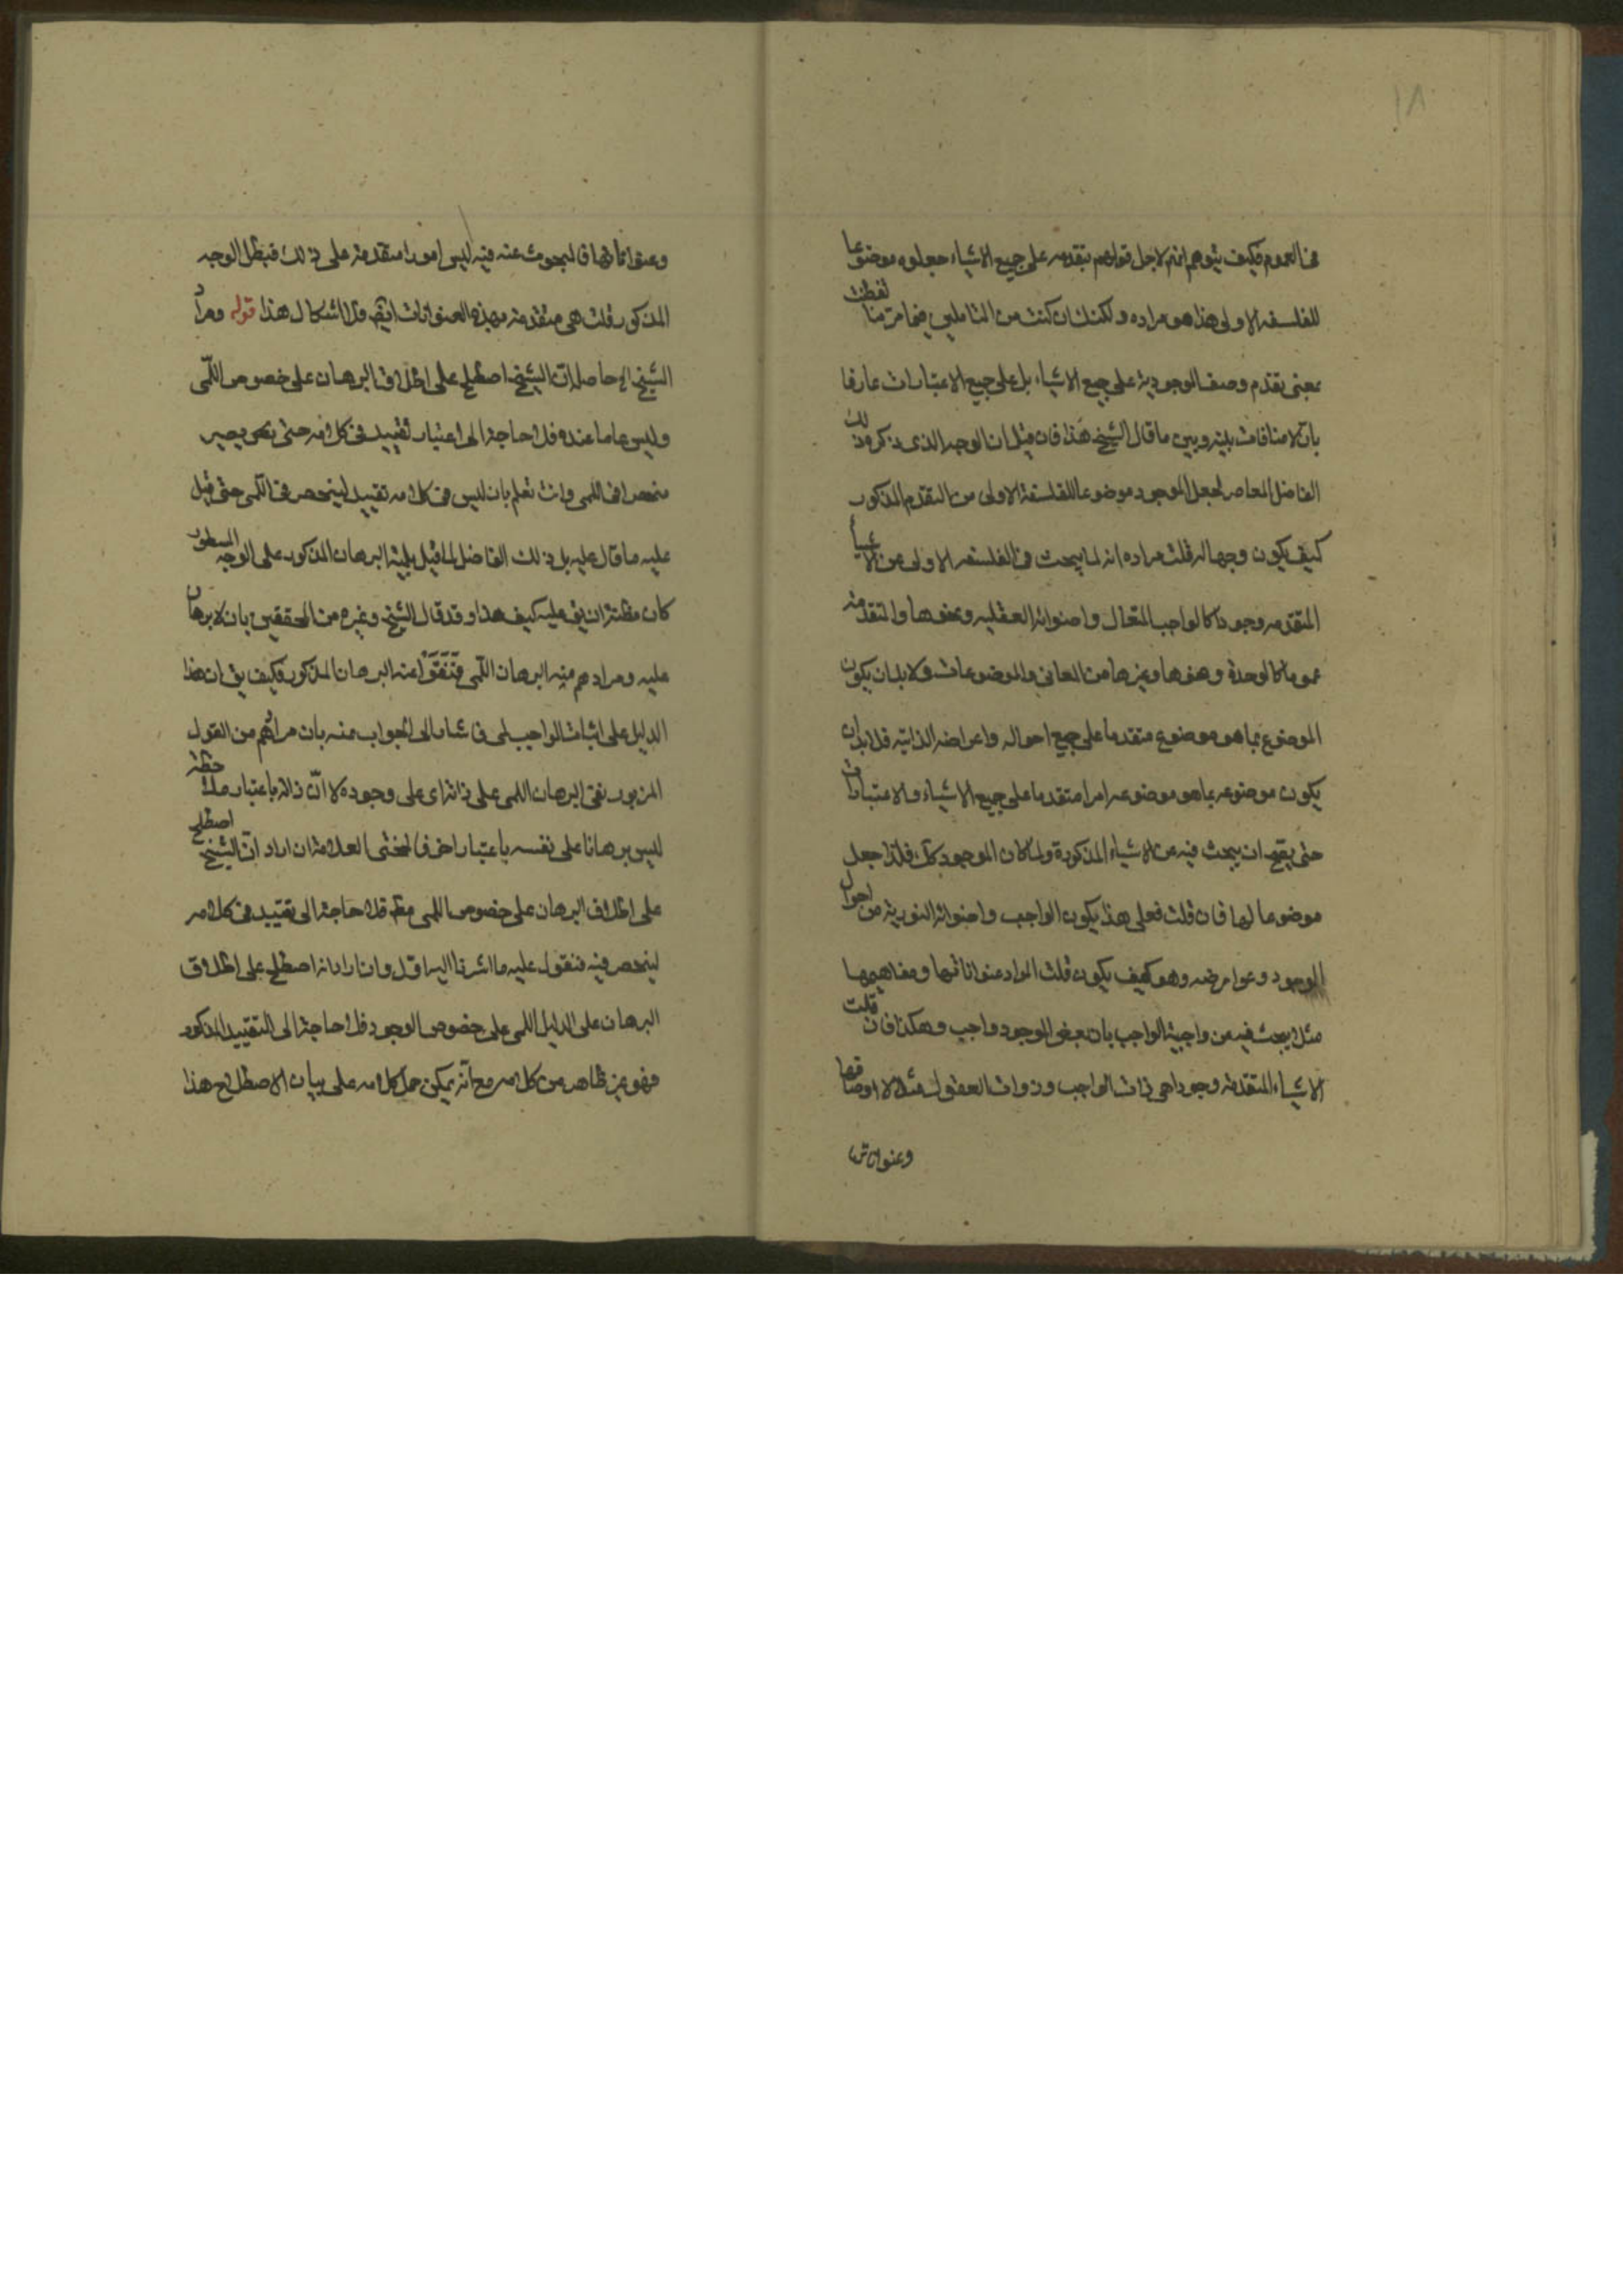 ١٨
فى العموم فكيف يتوهم انهم لاجل قولهم بتقدمه على جميع الاشياء جعلوه موضوعا
للفلسفه الاولى هذا هو مراده ولكنك ان كنت من المتاملين فيما مر منا لفطنت
بمعنى تقدم وصف الموجودية على جميع الاشياء بل على جميع الاعتبارات عارفا
بان لا منافات بينه وبين ما قال الشيخ هذا فان قيل ان الوجه الذى ذكره ذلك
الفاضل المعاصر لجعل الموجود موضوعا للفلسفة الاولى من التقدم المذكور
كيف يكون وجها له قلت مراده انه لما يبحث فى الفلسفه الاولى عن الاشياء
المتقدمه وجودا كالواجب المتعال واضوائه العقليه ونحوها والمتقدمة
عموما كالوحدة ونحوها وغيرها من المعانى والموضوعات ولا بد ان يكون
الموضوع بما هو موضوع متقدما على جميع احواله واعراضه الذاتيه فلا بد ان
يكون موضوعه بما هو موضوعه امرا متقدما على جميع الاشياء والاعتبارات
حتى يصح ان يبحث فيه عن الاشياء المذكورة ولما كان الموجود كك فلذا جعل
موضوعا لها فان قلت فعلى هذا يكون الواجب واضوائه النورية من احوال
الوجود وعوارضه وهو كيف يكون قلت المراد عنواناتها ومفاهيمها
مثلا يبحث فيه عن واجبية الواجب بان بعض الموجود واجب وهكذا فان قلت
الاشياء المتقدمة وجودا هى ذات الواجب وذوات العقول مثلا لا اوصافها
وعنواناتها
وعنواناتها فالمبحوث عنه فيه ليس امورا متقدمة على ذلك فبطل الوجه
المذكور قلت هى متقدمة بهذه العنوانات ايضا فلا اشكال هذا قوله ومراد
الشيخ الخ حاصله ان الشيخ اصطلح على اطلاق البرهان على خصوص اللّمى
وليس عاما عنده فلا حاجة الى اعتبار تقييد فى كلامه حتى يصير
منحصرا فى اللمى وانت تعلم بان ليس فى كلامه تقييد لينحصر فى اللّمى حتى قيل
عليه ما قال عليه بل ذلك الفاضل لما قيل بلمية البرهان المذكور على الوجه المسطور
كان مظنة ان يق عليه كيف هذا وقد قال الشيخ وغيره من المحققين بان لا برهان
عليه ومرادهم منه البرهان اللّمى فنفوا عنه البرهان المذكور فكيف يق ان هذا
الدليل على اثبات الواجب لمى فاشار الى الجواب عنه بان مرادهم من القول
المزبور نفى البرهان اللمى على ذاته اى على وجوده لا انّ ذاته باعتبار ملاحظة
ليس برهانا على نفسه باعتبار اخر فالمحشى العلامة ان اراد انّ الشيخ اصطلح
على اطلاق البرهان على خصوص اللمى مط فلا حاجة الى تقييد فى كلامه
لينحصر فيه فنقول عليه ما اشرنا اليه اولا وان اراد انه اصطلح على اطلاق
البرهان على الدليل اللمى على خصوص الوجود فلا حاجة الى التقييد المذكور
فهو غير ظاهر من كلامه مع انّه يمكن حمل كلامه على بيان الاصطلاح هذا